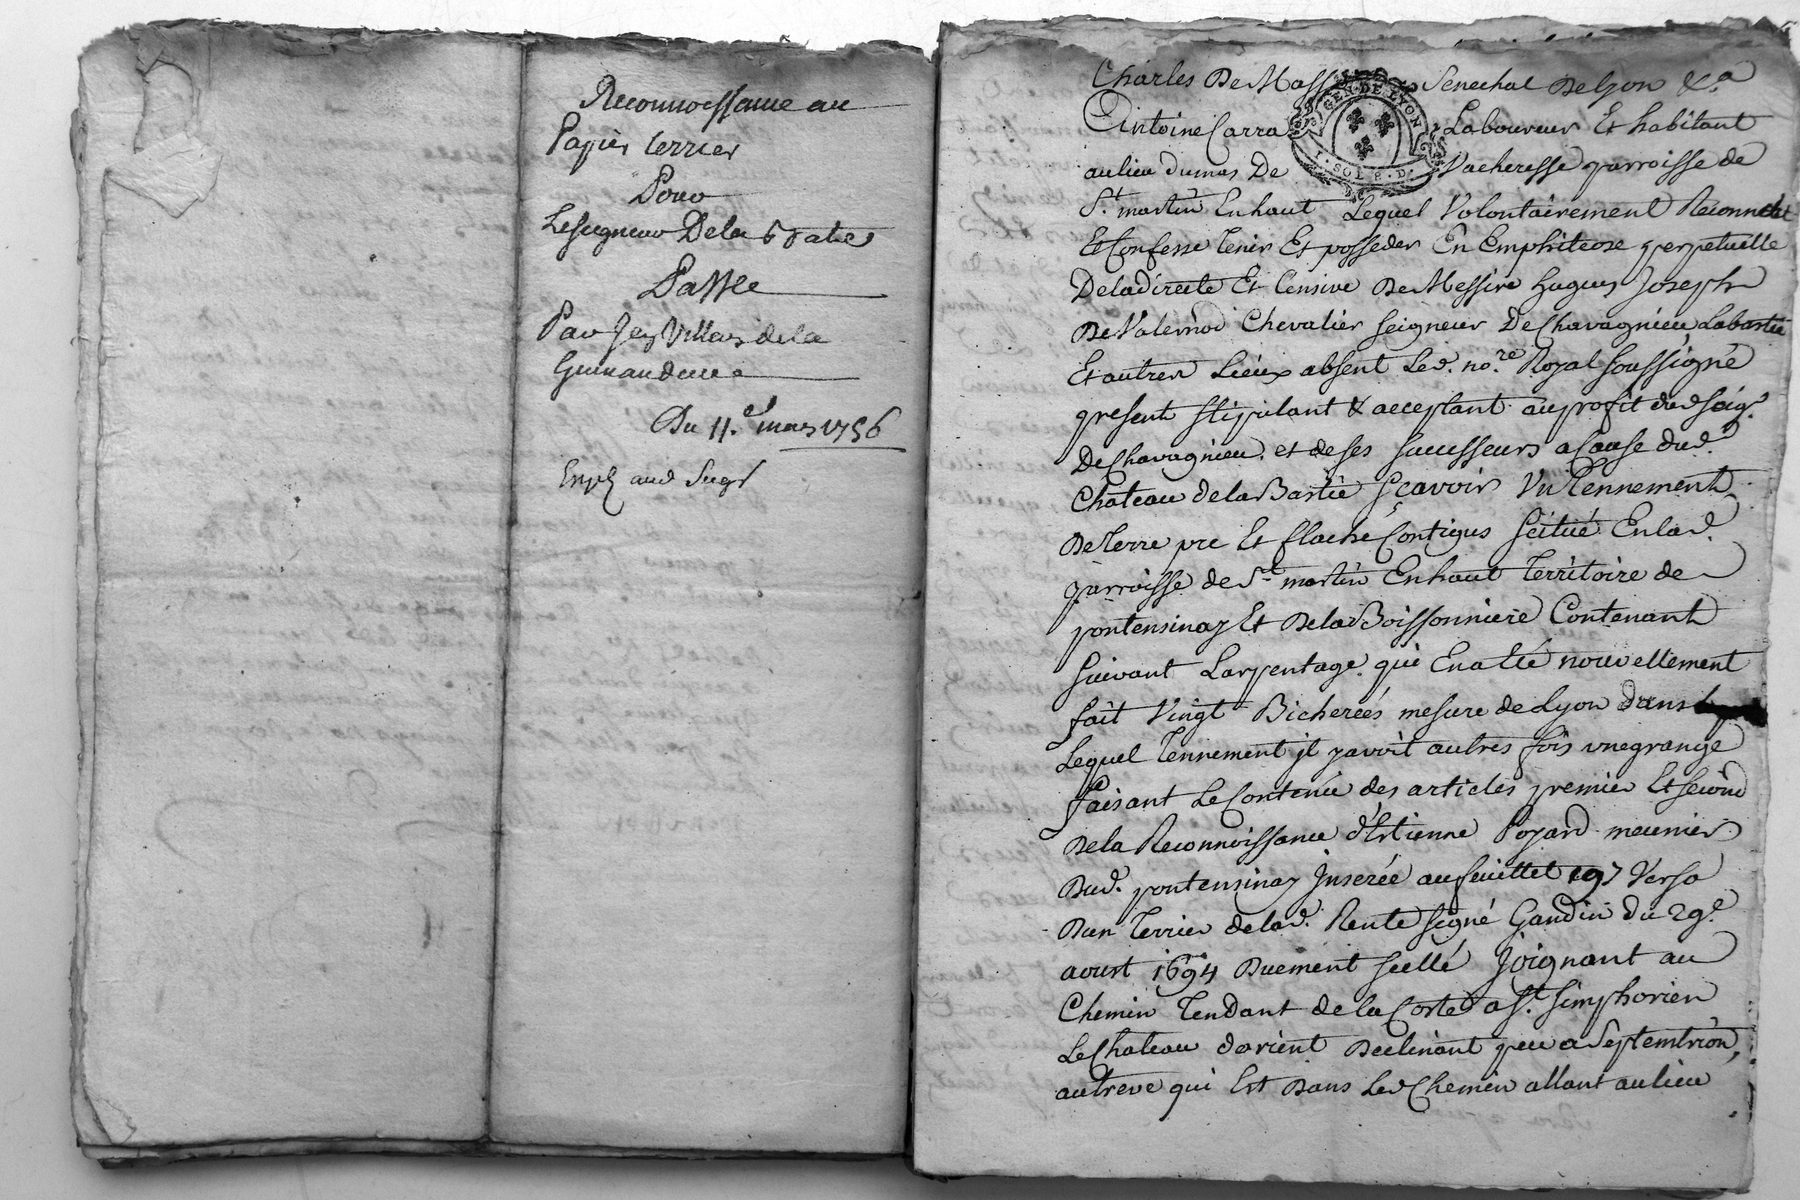 Reconnoissance au
Papier terrier
Pour
Le Seigneur De la
Passée
Par Villars de la
Du 11.e mars 1756
Charles De Mass Senechal De Lyon &.a
GEN. DE LYON
1. SOL 8. D.
Antoine Carra Laboureur Et habitant
au lieu du mas De Vacheresse parroisse de
St. martin En haut Lequel Volontairement Reconnoit
Et Confesse Tenir Et posseder En Emphiteose perpetuelle
De la directe Et Censive De Messire hugues Joseph
De Valernod Chevalier Seigneur De Chavagnieu Labastie
Et autres Lieux absent Led. no.re Royal soussigné
present stipulant & acceptant au profit dud seigr.
De Chavagnieu et de ses successeurs a Cause dud.
Chateau de la Bastie sçavoir Un Tennement
De Terre pré Et flache Contigus scitué En lad.
parroisse de St. martin En haut Territoire de
pontensinay Et De la Boissonniere Contenant
suivant L'arpentage qui En a été nouvellement
fait Vingt Bicherées mesure de Lyon dans
Lequel Tennement il y avoit autres fois une grange
faisant Le Contenu des articles premier Et second
De la Reconnoissance d'Estienne Poyard meunier
Dud. pontensinay Inserée au feuillet 197 Verso
D'un Terrier de lad. Rente signé Gaudin du 29.e
aoust 1694 Duement scellé Joignant au
Chemin Tendant de la Coste a St. Simphorien
Le Chateau d'orient Declinant peu a Septentrion,
autreve qui Est Dans Led Chemin allant au lieu